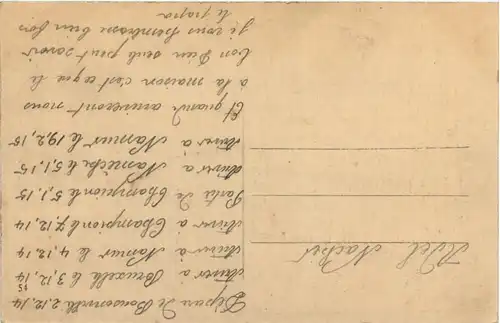 Départ de Bousonville 2.12.14
Arriver à Bruxelle le 3,12,14
15
Arriver à Namur le 4,12,14
Arriver a Champion le 7,12,14
Partit de Champion le 5,1.15
Arriver à Namêche le 5.1.15
Arriver à Namur le 19,2,15
Et quand arriveront nous
à la maison c'est ce que le
bon Dieu seule peut savoir
je vous embrasse bien fort
le papa
Adel Nacher